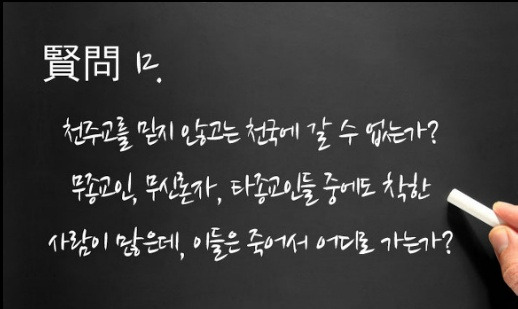 賢問 12.
천주교를 믿지 않고는 천국에 갈 수 없는가?
무종교인, 무신론자, 타종교인들 중에도 착한
사람이 많은데, 이들은 죽어서 어디로 가는가?